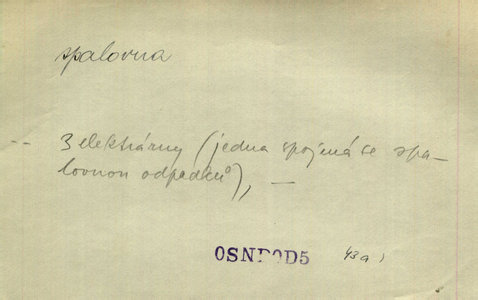 spalovna
-- 3 elektrárny (jedna spojená se spa-
lovnou odpadků), —
43a)